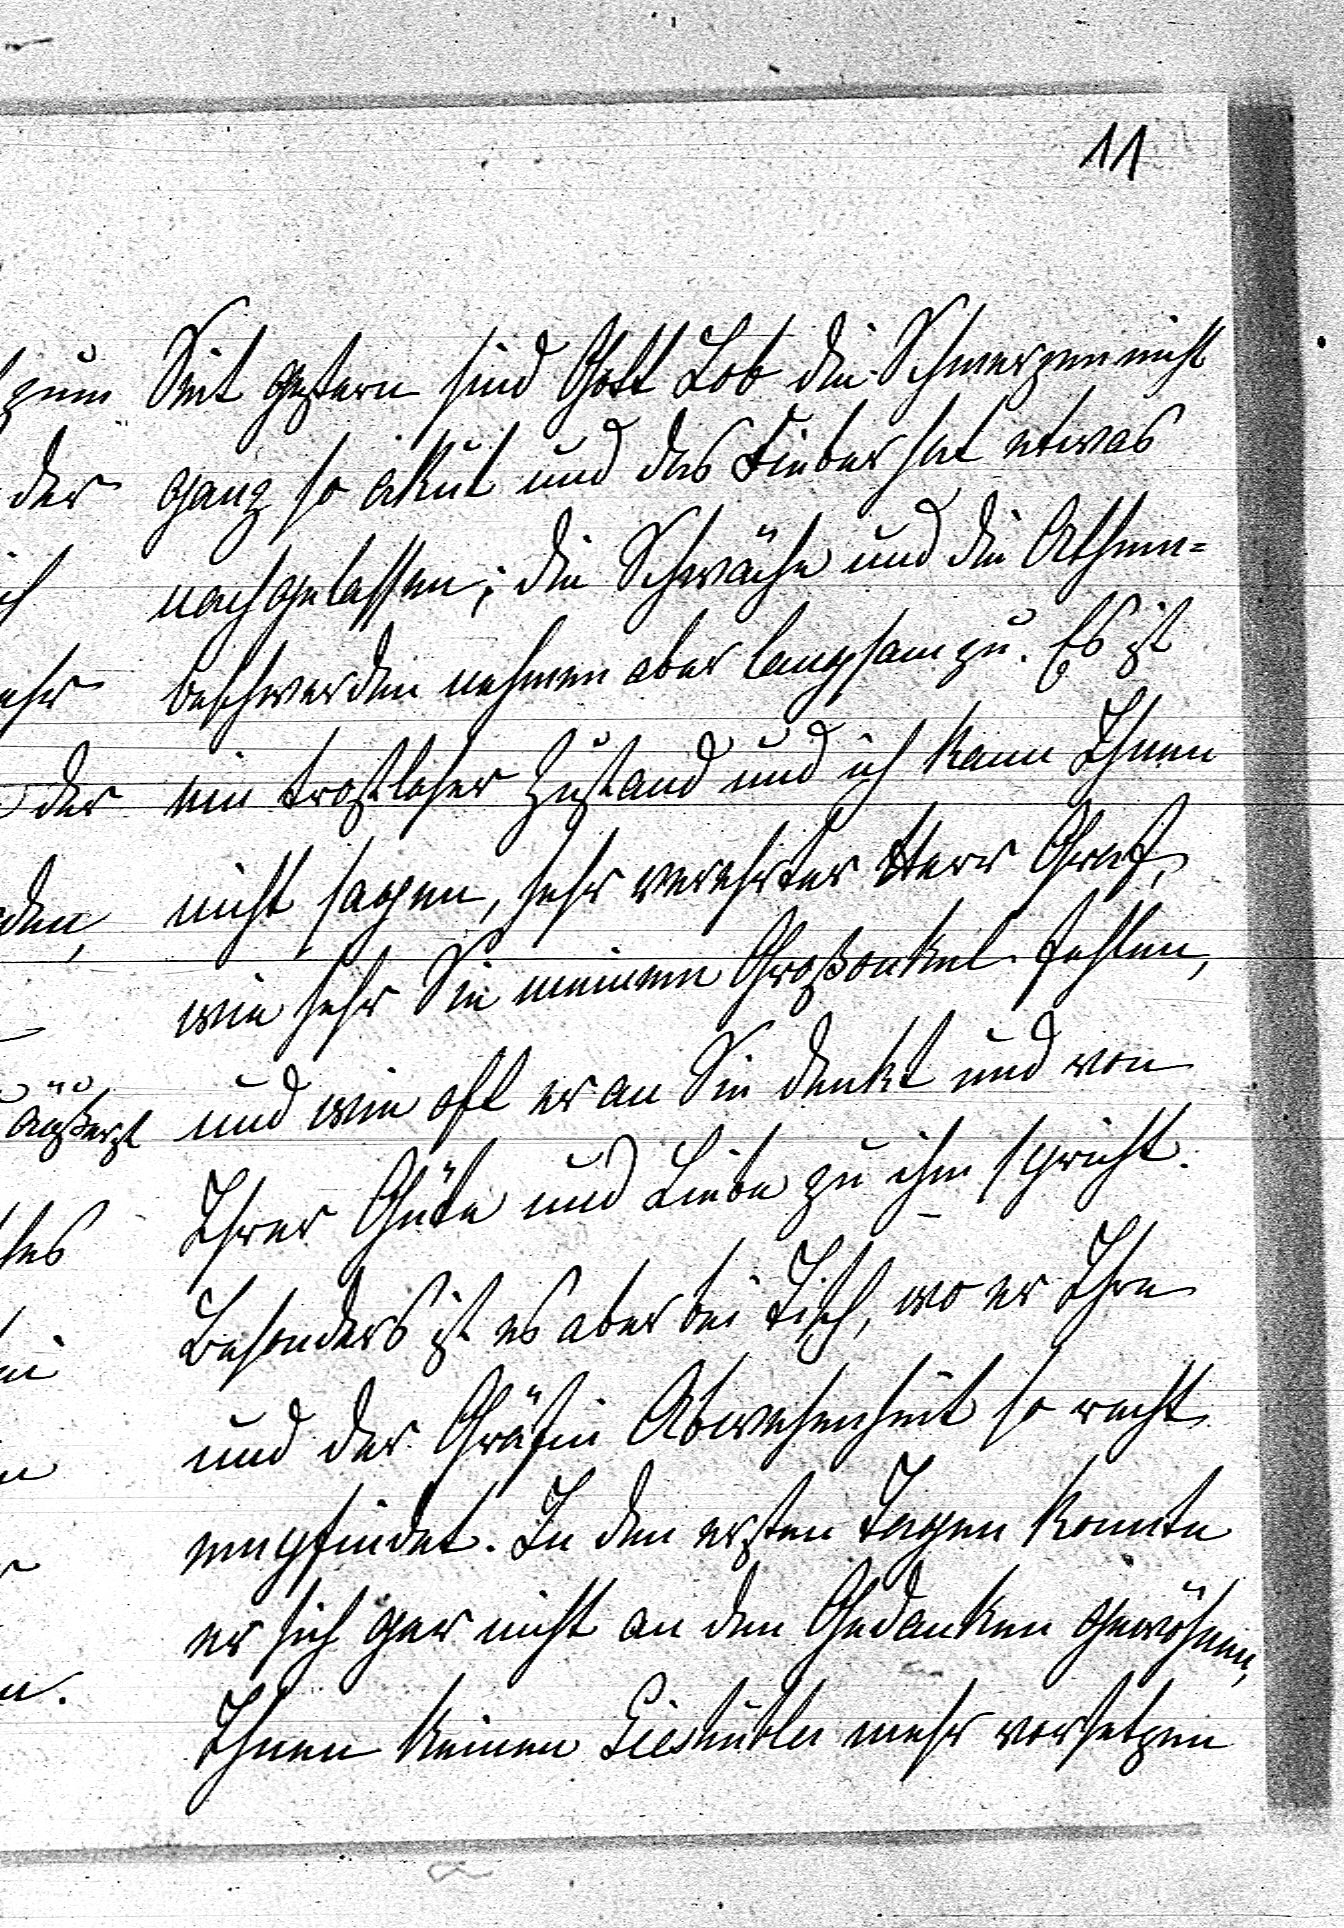 11
Seit gestern sind Gott Lob die Schmerzen nicht
ganz so akut und das Fieber hat etwas
nachgelassen; die Schwäche und die Athem-
beschwerden nehmen aber langsam zu. Es ist
ein trostloser Zustand und ich kann Ihnen
nicht sagen, sehr verehrter Herr Graf,
wie sehr Sie meinem Großonkel fehlen,
und wie oft er an Sie denkt und von
Ihrer Güte und Liebe zu ihm spricht.
Besonders ist es aber bei Tisch, wo er Ihre
und der Gräfin Abwesenheit so recht
empfindet. In den ersten Tagen konnte
er sich gar nicht an den Gedanken gewöhnen,
Ihnen keinen Gieshübler mehr vorsetzen
zum
der
der
äußerst